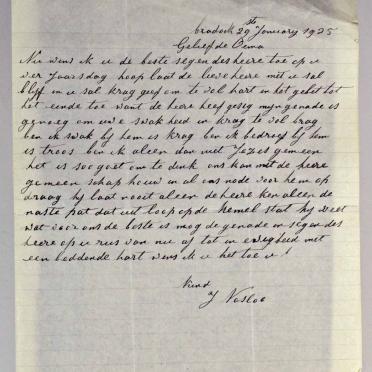 Cradock 29st January 1925
Geliefde Oema
Nu wens ik u de beste segen des heere toe op u
ver Jaarsdag hoop laat de lieve heere met u sal
blyf en u sal krag geef om te vol hart in het gebet tot
het einde toe want de heere heef geseg myn genade is
genoeg om uwe swakheid en krag te vol brag
ben ik swak by hem is krag ben ik bedroef by hem
is troos ben ik alleen dan met Jezus gemeen
het is soo goet om te denk ons kan met de heere
gemeen schap houw en al ons node voor hem op
draag hy laat nooit alleen de heere ken alleen de
naste pat dat uit loop op de hemel stat hy weet
wat voor ons de beste is mog de genade en segen des
heere op u rus van nu af tot in ewigheid met
een biddende hart wens ik u het toe u
Vrind
J Vosloo